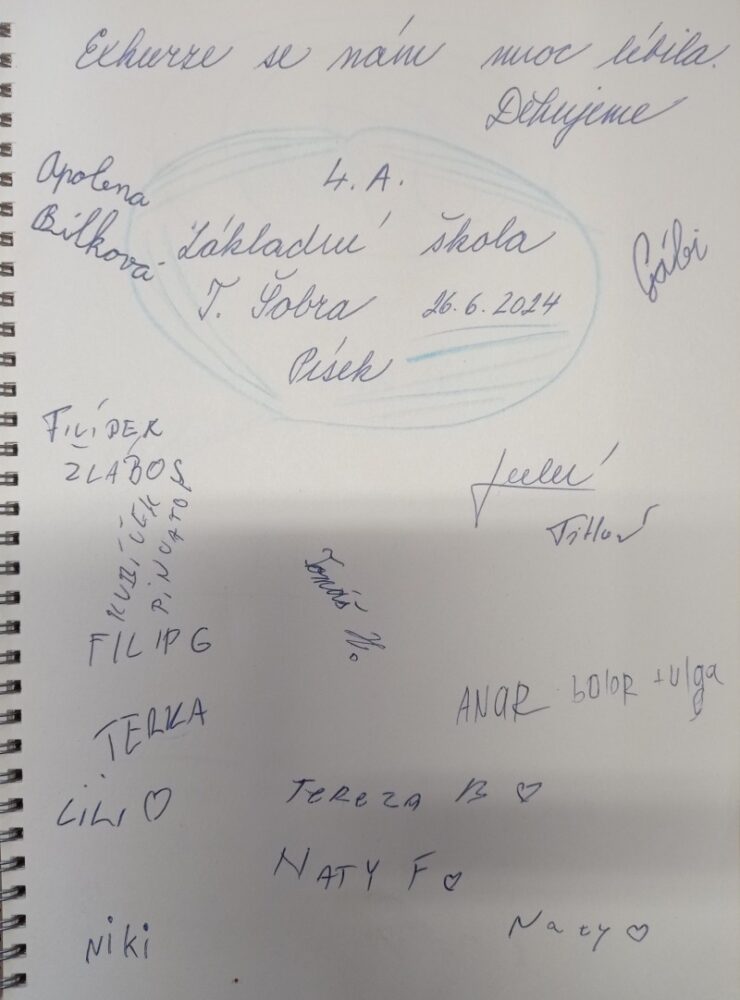 Exkurze se nám moc líbila.
Děkujeme
4. A.
Apolena
Bílková
Základní škola
Gábi
T. Šobra 26.6.2024
Písek
FILÍPEK
ŽLÁBOS
KUBÍČEK
Tomáš H.
FILIP G
ANAR bolor tulga
TERKA
LILI ♡
TEREZA B ♡
NATY F ♡
Niki
Naty ♡